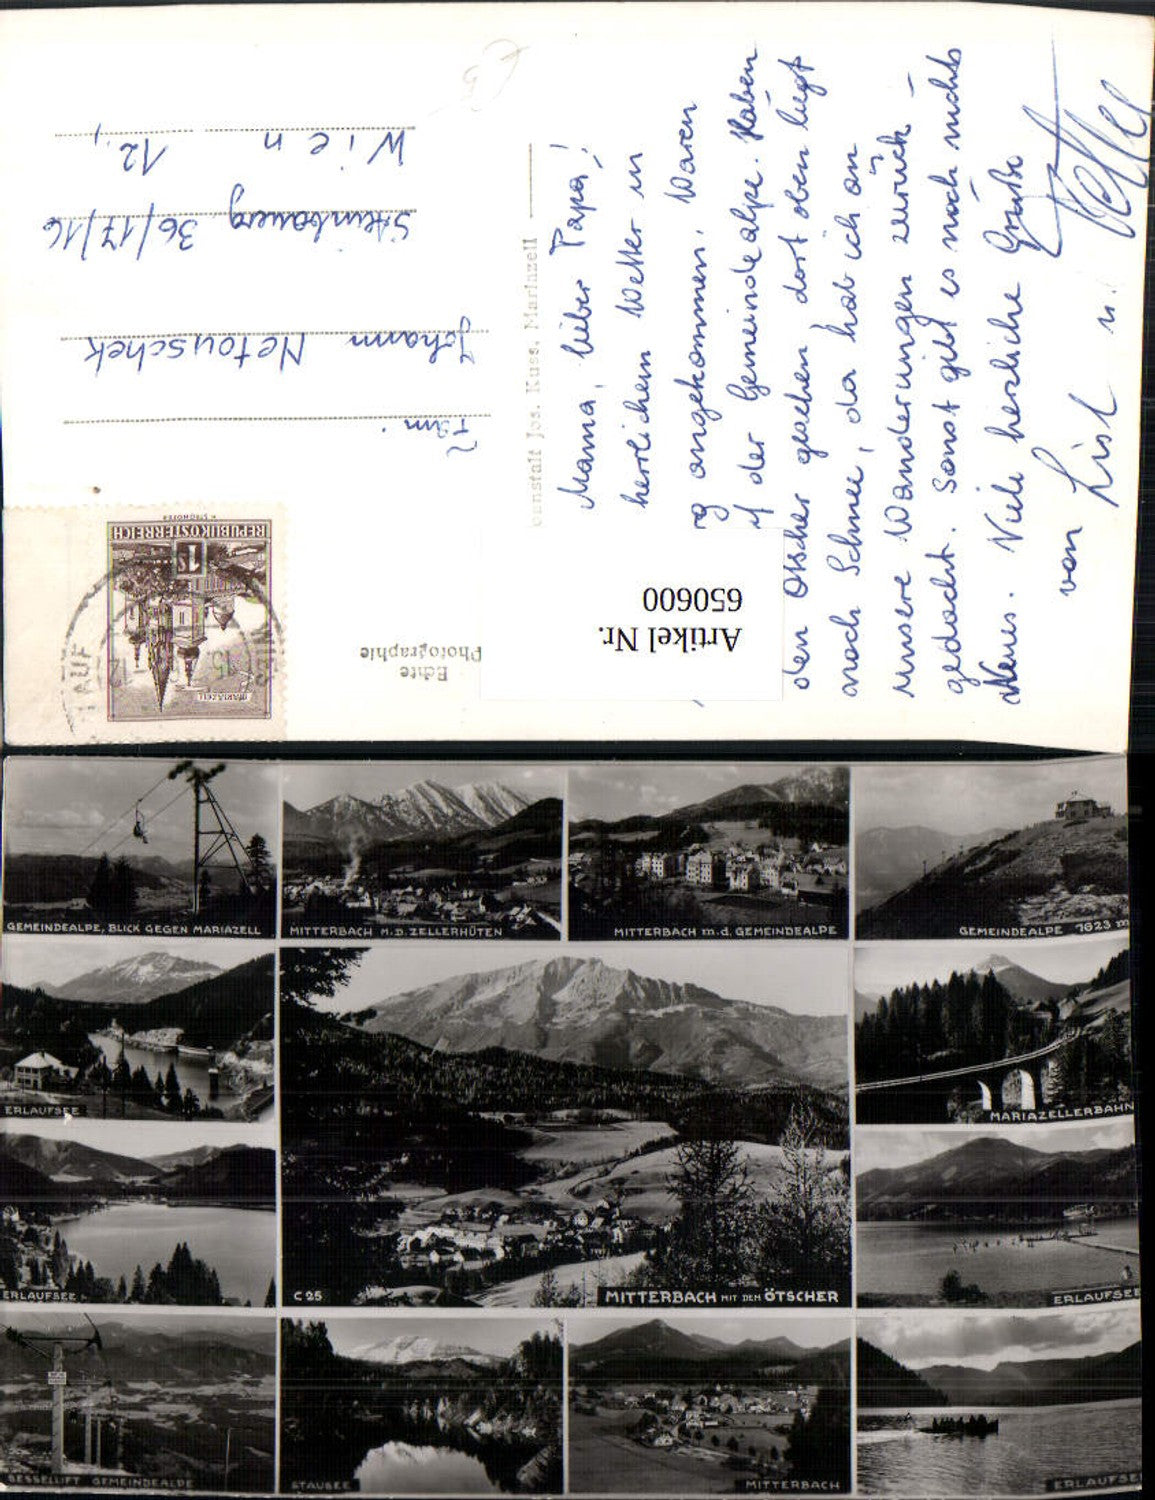 Mama, lieber Papa!
herrlichem Wetter in
angekommen. Waren
der Gemeindealpe. Haben
den Ötscher gesehen, dort oben liegt
noch Schnee, da hab ich an
unsere Wanderungen zurück-
gedacht. Sonst gibt es noch nichts
Neues. Viele herzliche Grüße
von Lisl u.
Jos. Kuss, Mariazell
Fam.
Johann Netouschek
Steinbauerg. 36/17/16
Wien 12.,
Echte
Photographie
Artikel Nr.
650600
REPUBLIK ÖSTERREICH
1S
MARIAZELL
GEMEINDEALPE, BLICK GEGEN MARIAZELL
MITTERBACH M.D. ZELLERHÜTEN
MITTERBACH m.d. GEMEINDEALPE
GEMEINDEALPE 1623 m
ERLAUFSEE
MARIAZELLERBAHN
ERLAUFSEE
C 25
MITTERBACH MIT DEM ÖTSCHER
ERLAUFSEE
SESSELLIFT GEMEINDEALPE
STAUSEE
MITTERBACH
ERLAUFSEE